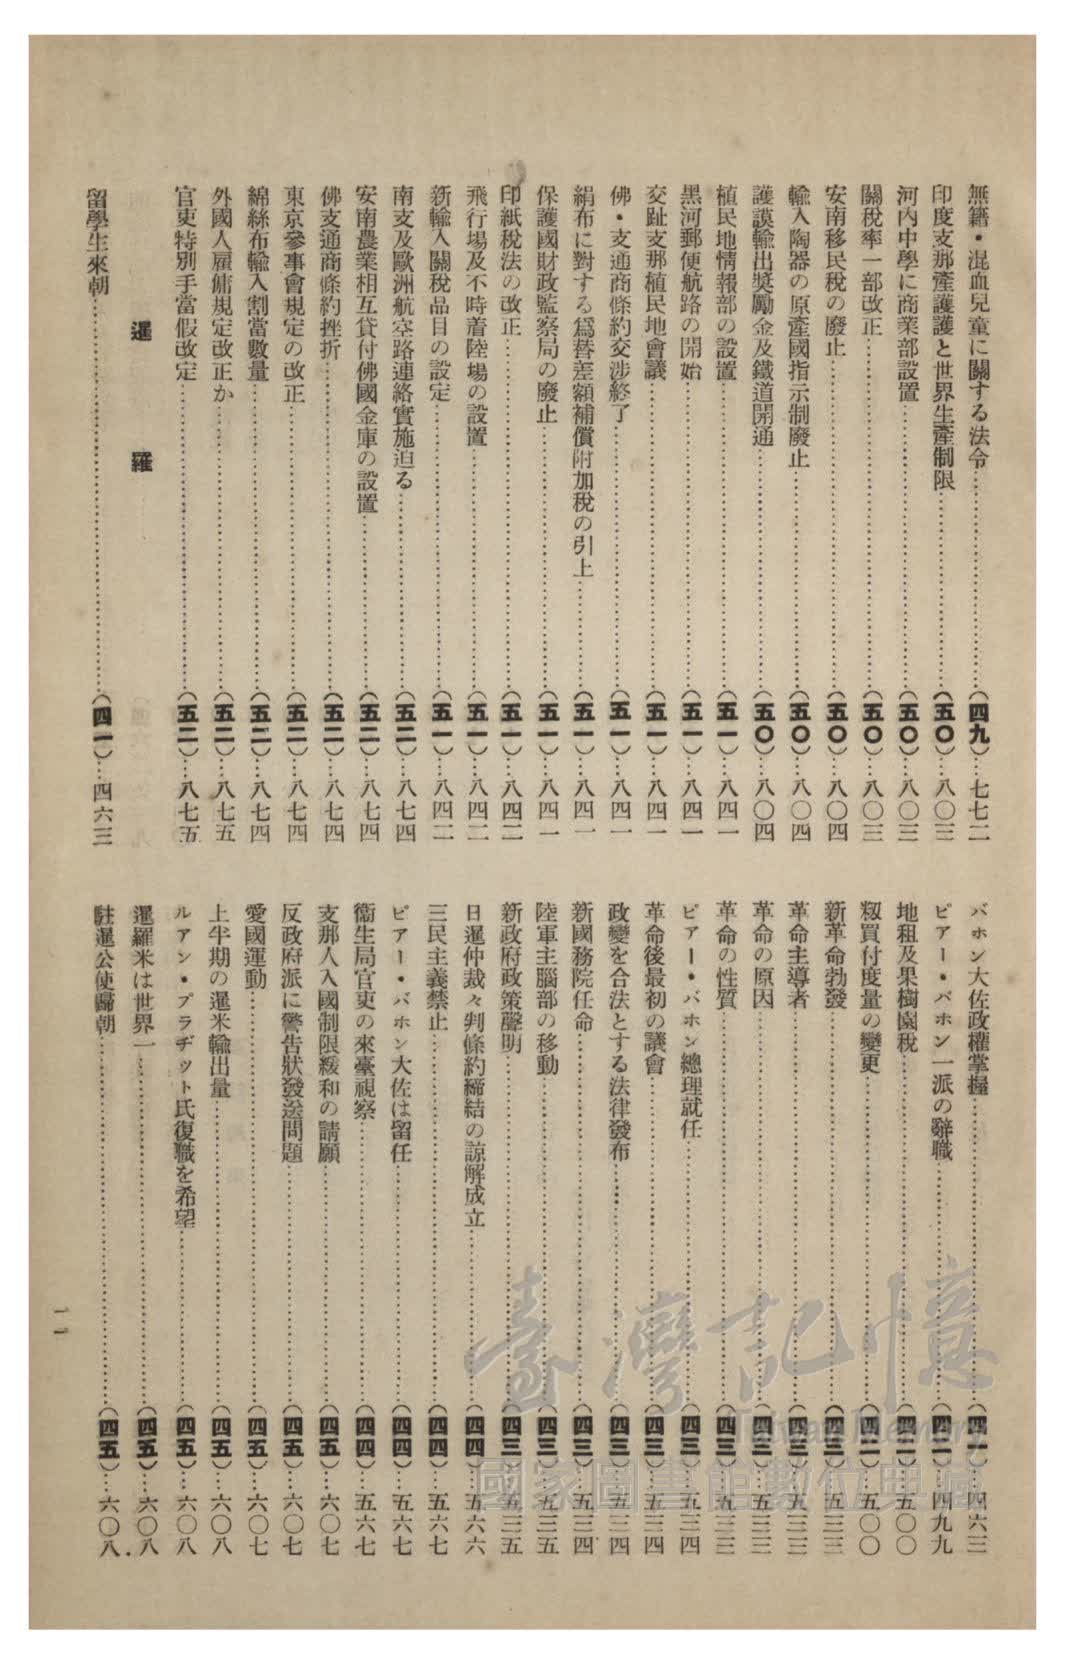 無籍・混血兒童に關する法令……(四九)…七七二
印度支那產護謨と世界生產制限……(五〇)…八〇三
河內中學に商業部設置……(五〇)…八〇三
關稅率一部改正……(五〇)…八〇三
安南移民稅の廢止……(五〇)…八〇四
輸入陶器の原產國指示制廢止……(五〇)…八〇四
護謨輸出奬勵金及鐵道開通……(五〇)…八〇四
植民地情報部の設置……(五一)…八四一
黑河郵便航路の開始……(五一)…八四一
交趾支那植民地會議……(五一)…八四一
佛・支通商條約交涉終了……(五一)…八四一
絹布に對する爲替差額補償附加稅の引上……(五一)…八四一
保護國財政監察局の廢止……(五一)…八四一
印紙稅法の改正……(五一)…八四二
飛行場及不時着陸場の設置……(五一)…八四二
新輸入關稅品目の設定……(五一)…八四二
南支及歐洲航空路連絡實施迫る……(五二)…八七四
安南農業相互貸付佛國金庫の設置……(五二)…八七四
佛支通商條約挫折……(五二)…八七四
東京參事會規定の改正……(五二)…八七四
綿絲布輸入割當數量……(五二)…八七四
外國人雇傭規定改正か……(五二)…八七五
官吏特別手當假改定……(五二)…八七五
暹羅
留學生來朝……(四一)…四六三
バホン大佐政權掌握……(四一)…四六三
ピアー・バホン一派の辭職……(四二)…四九九
地租及果樹園稅……(四二)…五〇〇
籾買付度量の變更……(四二)…五〇〇
新革命勃發……(四三)…五三三
革命主導者……(四三)…五三三
革命の原因……(四三)…五三三
革命の性質……(四三)…五三三
ピアー・バホン總理就任……(四三)…五三四
革命後最初の議會……(四三)…五三四
政變を合法とする法律發布……(四三)…五三四
新國務院任命……(四三)…五三四
陸軍主腦部の移動……(四三)…五三五
新政府政策聲明……(四三)…五三五
日暹仲裁々判條約締結の諒解成立……(四四)…五六六
三民主義禁止……(四四)…五六七
ピアー・バホン大佐は留任……(四四)…五六七
衞生局官吏の來臺視察……(四四)…五六七
支那人入國制限緩和の請願……(四五)…六〇七
反政府派に警告狀發送問題……(四五)…六〇七
愛國運動……(四五)…六〇七
上半期の暹米輸出量……(四五)…六〇八
ルアン・プラヂット氏復職を希望……(四五)…六〇八
暹羅米は世界一……(四五)…六〇八
駐暹公使歸朝……(四五)…六〇八
一一
臺灣記憶
Taiwan Memory
國家圖書館數位典藏